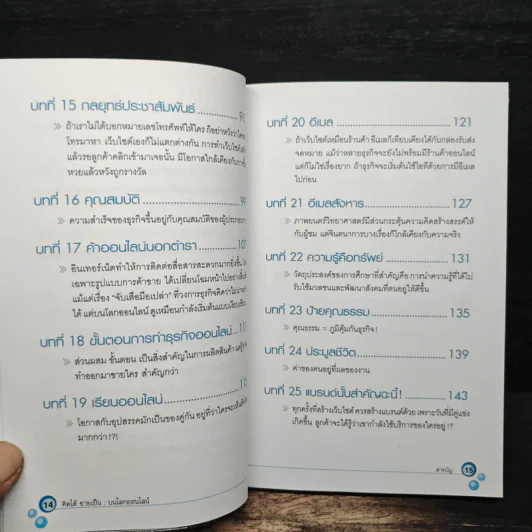 บทที่ 15 กลยุทธ์ประชาสัมพันธ์ 91
» ถ้าเราไม่ได้บอกหมายเลขโทรศัพท์ให้ใคร ก็อย่าหวังว่าใคร
โทรมาหา เว็บไซต์เองก็ไม่แตกต่างกัน การทำเว็บไซต์
แล้วรอลูกค้าคลิกเข้ามาเจอนั้น มีโอกาสใกล้เคียงกับการ
หวยแล้วหวังถูกรางวัล
บทที่ 16 คุณสมบัติ
» ความสำเร็จของธุรกิจขึ้นอยู่กับคุณสมบัติของผู้ประกอบ
บทที่ 17 ค้าออนไลน์นอกตำรา 107
» อินเทอร์เน็ตทำให้การติดต่อสื่อสารสะดวกมากยิ่งขึ้น
เฉพาะรูปแบบการค้าขาย ได้เปลี่ยนโฉมหน้าไปอย่าง
แม้แต่เรื่อง "จับเสือมือเปล่า" ที่วงการธุรกิจคิดว่าไม่น่า
ได้ แต่บนโลกออนไลน์ ดูเหมือนกำลังเริ่มต้นแบบเงียบ
บทที่ 18 ขั้นตอนการทำธุรกิจออนไลน์
» ส่วนผสม ขั้นตอน เป็นสิ่งสำคัญในการผลิตสินค้า แต่
ทำออกมาขายใคร สำคัญกว่า
บทที่ 19 เรียนออนไลน์
» โอกาสกับอุปสรรคมักเป็นของคู่กัน อยู่ที่ว่าใครจะเห็น
มากกว่า !?!
14 คิดได้ ขายเป็น : บนโลกออนไลน์
บทที่ 20 อีเมล 121
» ถ้าเว็บไซต์เหมือนร้านค้า อีเมลก็เทียบเคียงได้กับกล่องรับส่ง
จดหมาย แม้ว่าหลายธุรกิจจะยังไม่พร้อมมีร้านค้าออนไลน์
แต่ก็ไม่ใช่เรื่องยาก ถ้าธุรกิจจะเริ่มต้นใช้ไอทีด้วยการมีอีเมล
ไปก่อน
บทที่ 21 อีเมลสังหาร 127
» ภาพยนตร์วิทยาศาสตร์มีส่วนกระตุ้นความคิดสร้างสรรค์ให้
กับผู้ชม แต่จินตนาการบางเรื่องก็ใกล้เคียงกับความจริง
บทที่ 22 ความรู้คือทรัพย์ 131
» วัตถุประสงค์ของการศึกษาที่สำคัญคือ การนำความรู้ที่ได้ไป
รับใช้มวลชนและพัฒนาสังคมที่ตนอยู่ให้ดีขึ้น
บทที่ 23 ป้ายคุณธรรม 135
» คุณธรรม = ภูมิคุ้มกันธุรกิจ !
บทที่ 24 ประมูลชีวิต 139
» ค่าของคนอยู่ที่ผลของงาน
บทที่ 25 แบรนด์นั้นสำคัญฉะนี้ ! 143
» ทุกครั้งที่สร้างเว็บไซต์ ควรสร้างแบรนด์ด้วย เพราะวันที่มีคู่แข่ง
เกิดขึ้น ลูกค้าจะได้รู้ว่าเขากำลังใช้บริการของใครอยู่ !?
สารบัญ 15